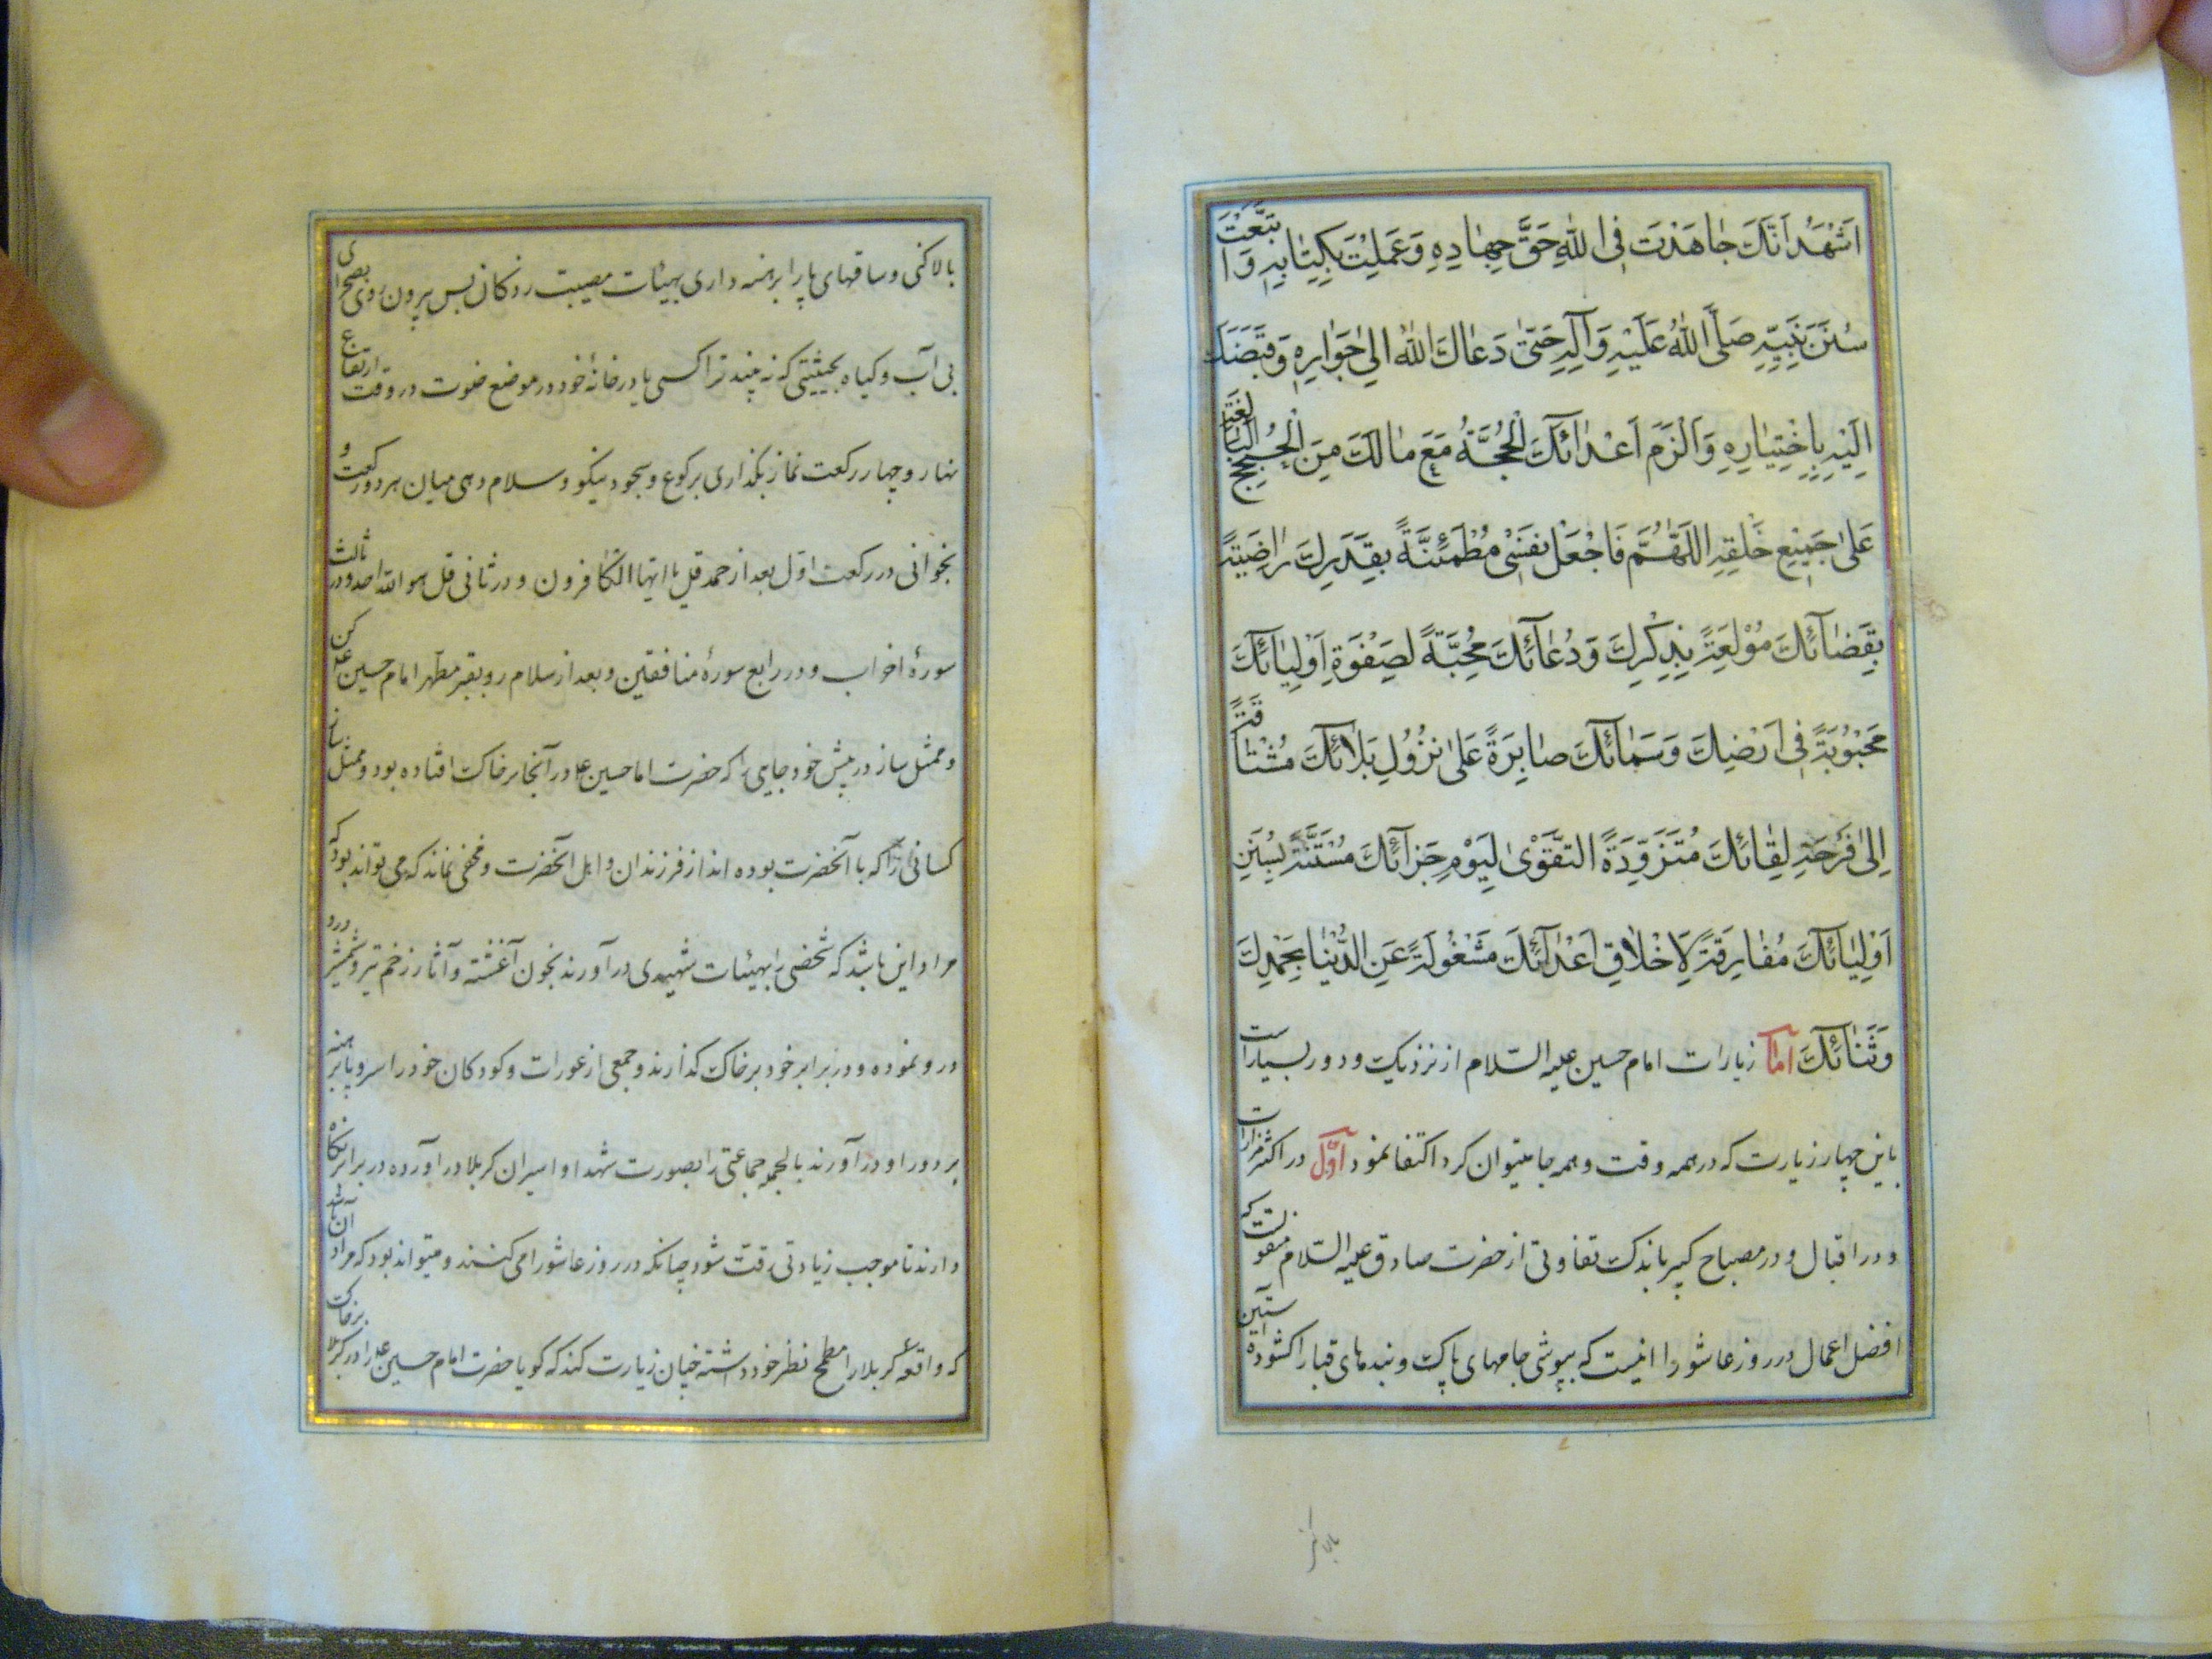 اَشْهَدُ اَنَّكَ جٰاهَدْتَ فِى اللّٰهِ حَقَّ جِهٰادِهِ وَعَمِلْتَ بِكِتٰابِهِ وَاتَّبَعْتَ
سُنَنَ نَبِيِّهِ صَلَّى اللّٰهُ عَلَيْهِ وَآلِهِ حَتّٰى دَعٰاكَ اللّٰهُ اِلىٰ جَوٰارِهِ وَقَبَضَكَ
اِلَيْهِ بِاِخْتِيٰارِهِ وَاَلْزَمَ اَعْدٰائَكَ الْحُجَّةُ مَعَ مٰالَكَ مِنَ الْحُجَجِ الْبٰالِغَةِ
عَلىٰ جَمِيْعِ خَلْقِهِ اَللّٰهُمَّ فَاجْعَلْ نَفْسِى مُطْمَئِنَّةً بِقَدَرِكَ رٰاضِيَةً
بِقَضٰآئِكَ مُوْلَعَةً بِذِكْرِكَ وَدُعٰآئِكَ مُحِبَّةً لِصَفْوَةِ اَوْلِيٰائِكَ
مَحْبُوْبَةً فِى اَرْضِكَ وَسَمٰائِكَ صٰابِرَةً عَلىٰ نُزُوْلِ بَلٰائِكَ مُشْتٰاقَةً
اِلىٰ فَرْحَةِ لِقٰائِكَ مُتَزَوِّدَةً التَّقْوىٰ لِيَوْمِ جَزٰآئِكَ مُسْتَنَّةً بِسُنَنِ
اَوْلِيٰائِكَ مُفٰارِقَةً لِاَخْلٰاقِ اَعْدٰآئِكَ مَشْغُولَةً عَنِ الدُّنْيٰا بِحَمْدِكَ
وَثَنٰائِكَ امّا زیارات امام حسین علیه السّلام از نزدیک و دور بسیار است
باین چهار زیارت که در همه وقت و همه جا میتوان کرد اکتفا نمود اوّل در اکثر مزارات
و در اقبال و در مصباح کبیر باندک تفاوتی از حضرت صادق علیه السّلام منقولست که
افضل اعمال در روز عاشورا اینست که بپوشی جامهای پاک و بندهای قبا را کشوده آستین
بالا کنی و ساقهای پا را برهنه داری بهیئات مصیبت زدکان پس بیرون روی بصحرای
بی آب و کیاه بحیثیتی که نه بیند ترا کسی یا در خانهٔ خود در موضع خلوت در وقت ارتفاع
نهار و چهار رکعت نماز بکذاری برکوع و سجود نیکو و سلام دهی میان هر دو رکعت و
بخوانی در رکعت اوّل بعد از حمد قل یا ایها الکافرون و در ثانی قل هو الله احد و در ثالث
سورهٔ احزاب و در رابع سورهٔ منافقین و بعد از سلام رو بقبر مطهر امام حسین ع کن
و ممثل ساز در پیش خود جایی را که حضرت امام حسین ع در آنجا بر خاک افتاده بود و ممثل ساز
کسانی را که با آنحضرت بوده اند از فرزندان و اهل آنحضرت و مخفی نماند که می تواند بود که
مراد این باشد که شخصی را بهیئات شهیدی در آورند بخون آغشته و آثار زخم تیر و شمشیر در و
در و نموده و در برابر خود بر خاک کذارند و جمعی از عورات و کودکان خود را سر و پا برهنه
بر دور او در آورند بالجمله جماعتی را بصورت شهدا و اسیران کربلا در آورده در برابر نکاه
دارند تا موجب زیادتی رقت شود چنانکه در روز عاشورا می کنند و میتواند بود که مراد آن باشد
که واقعهٔ کربلا را مطمح نظر خود داشته چنان زیارت کند که کویا حضرت امام حسین ع را در کربلا بر خاک